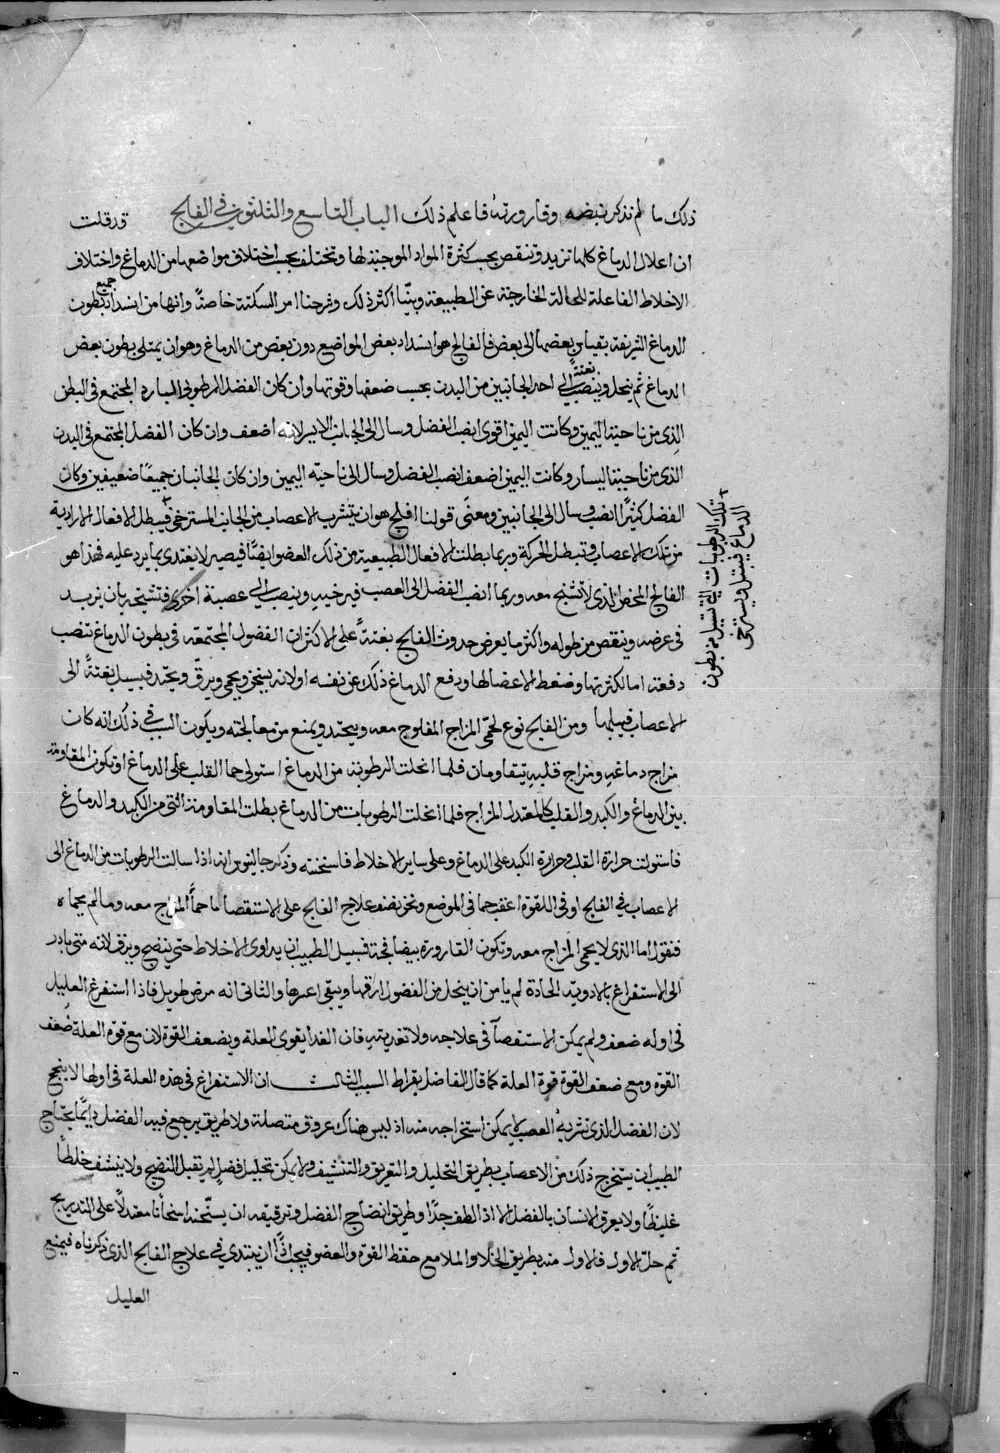 ذلك ما لم نذكر نبضه وقارورته فاعلم ذلك الباب التاسع والثلثون في الفالج قد قلت
ان اعلال الدماغ كلها تزيد وتنقص بحسب كثرة المواد الموجبة لها وتختلف بحسب اختلاف مواضعها من الدماغ واختلاف
الاخلاط الفاعلة للحالة الخارجة عن الطبيعة وبيّنا اكثر ذلك وشرحنا امر السكتة خاصةً وانها من انسداد جميع بطون
الدماغ الشريفة بعضها الى بعض فالفالج هو انسداد بعض المواضع دون بعض من الدماغ وهو ان يمتلى بطون بعض
الدماغ ثم ينحل وينصب بغتةً الى احد الجانبين من البدن بحسب ضعفها وقوتها وان كان الفضل الرطوبى البارد المجتمع في البطن
الذى من ناحية اليمين وكانت اليمين اقوى انصب الفضل وسال الى الجانب الايسر لانه اضعف وان كان الفضل المجتمع في البدن
الذى من ناحية اليسار وكانت اليمين اضعف انصب الفضل وسال الى ناحيه اليمين وان كان الجانبان جميعًا ضعيفين وكان
الفضل كثيرًا انصب وسال الى الجانبين ومعنى قولنا افلج هو ان يتشرب الاعصاب من الجانب المسترخى فيبطل الافعال الارادية
من تلك الاعصاب وتبطل الحركة وربما بطلت الافعال الطبيعية من ذلك العضو ايضًا فيصير لا يغتدى بما يرد عليه فهذا هو
الفالج المحض الذى لا تشنج معه وربما انصب الفضل الى العصب فيرخيه وينصب الى عصبة اخرى فتشنجه بان يزيد
في عرضه وينقص من طوله واكثر ما يعرض حدوث الفالج بغتةً على الاكثر ان الفضول المجتمعه في بطون الدماغ تنصب
دفعة اما لكثرتها وضغط الاعضا لها ودفع الدماغ ذلك عن نفسه او لانه يسخن ويحمى ويرقّ ويحتد فيسيل بغتةً الى
الاعصاب فيبلها ومن الفالج نوع لحمّى المزاج المفلوج معه ويحتد ويمنع من معالجته ويكون السبب في ذلك انه كان
مزاج دماغيه ومزاج قلبيه يتقاومان فلما انحلت الرطوبة من الدماغ استولى حما القلب على الدماغ او تكون المقاومة
بين الدماغ والكبد والقلب كالمعتدل المزاج فلما انحلت الرطوبات من الدماغ بطلت المقاومة التى من الكبد والدماغ
فاستولت حرارة القلب وحرارة الكبد على الدماغ وعلى ساير الاخلاط فاسخنته وذكر جالينوس انه اذا سالت الرطوبات من الدماغ الى
الاعصاب في الفالج او في اللقوة اعقب حما في الموضع ونحن نصف علاج الفالج على الاستقصا ما حما المزاج معه وما لم يحماه
فنقول اما الذى لا يحمى المزاج معه وتكون القارورة بيضا فجة فسبيل الطبيب ان يداوى الاخلاط حتى ينضج ويرق لانه متى بادر
الى الاستفراغ بالادوية الحادة لم يامن ان ينحل من الفضول ارقها ويبقى اعسرها والثانى انه مرض طويل فاذا استفرغ العليل
في اوله ضعف ولم يمكن الاستقصآ في علاجه ولا تغديته فان الغدا يقوى العلة ويضعف القوة لان مع قوة العلة ضُعف
القوة ومع ضعف القوة قوة العلة كما قال الفاضل بقراط السبب الثالث ان الاستفراغ في هذه العلة في اولها لا ينجح
لان الفضل الذى تشربه العصب لا يمكن استخراجه منه اذ ليس هناك عروق متصلة ولا طريق يرجع فيه الفضل دايمًا يحتاج
الطبيب ان يستخرج ذلك من الاعصاب بطريق التحليل والتعريق والتنشيف ولا يمكن تحليل فضل لم يقبل النضج ولا ينشف خلطًا
غليظًا ولا يعرق الانسان بالفضل الا اذ الطف جدًا وطريق انضاج الفضل وترقيقه ان يسخّنه اسخانًا معتدلًا على التدريج
ثم حل الاول فالاول منه بطريق الخلا والملا مع حفظ القوة والعضو فيجب اذًا ان نبتدى في علاج الفالج الذى ذكرناه فيمنع
العليل
تلك الرطوبات التى تسيل من بطون
الدماغ فيبتل ويسترخى